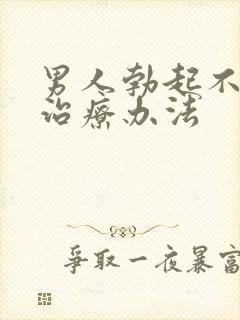 男人勃起不
治療办法
爭取一夜暴富